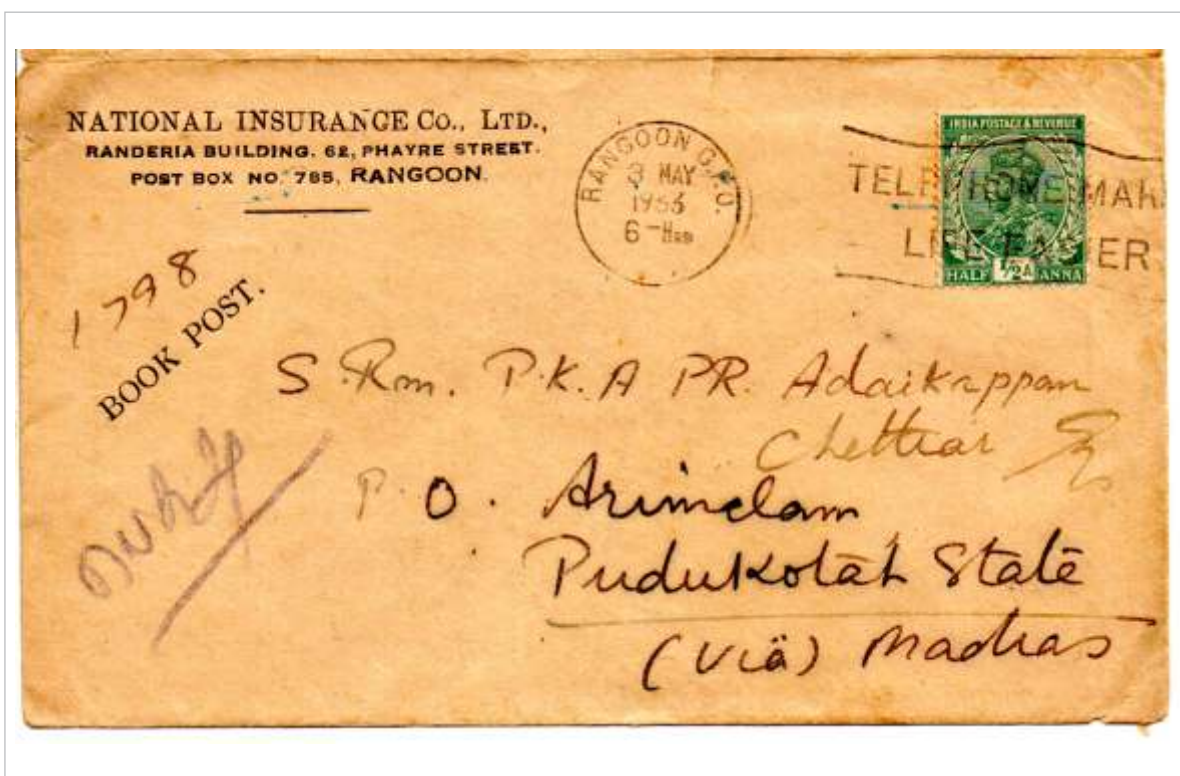 NATIONAL INSURANCE CO., LTD.,
RANDERIA BUILDING. 62, PHAYRE STREET.
POST BOX NO. 785, RANGOON.
RANGOON G.P.O.
3 MAY
1933
6-
INDIA POSTAGE & REVENUE
HALF ½A ANNA
LIFE EASIER
1798
BOOK POST.
S. Rm. P.K. A PR. Adaikappan
Chettiar
P. O. Arimelam
Pudukotah State
(Via) Madras